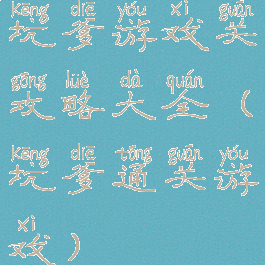 kēng diē yóu xì guān
坑爹游戏关
gōng lüè dà quán
攻略大全（
kēng diē tōng guān yóu
坑爹通关游
xì
戏）